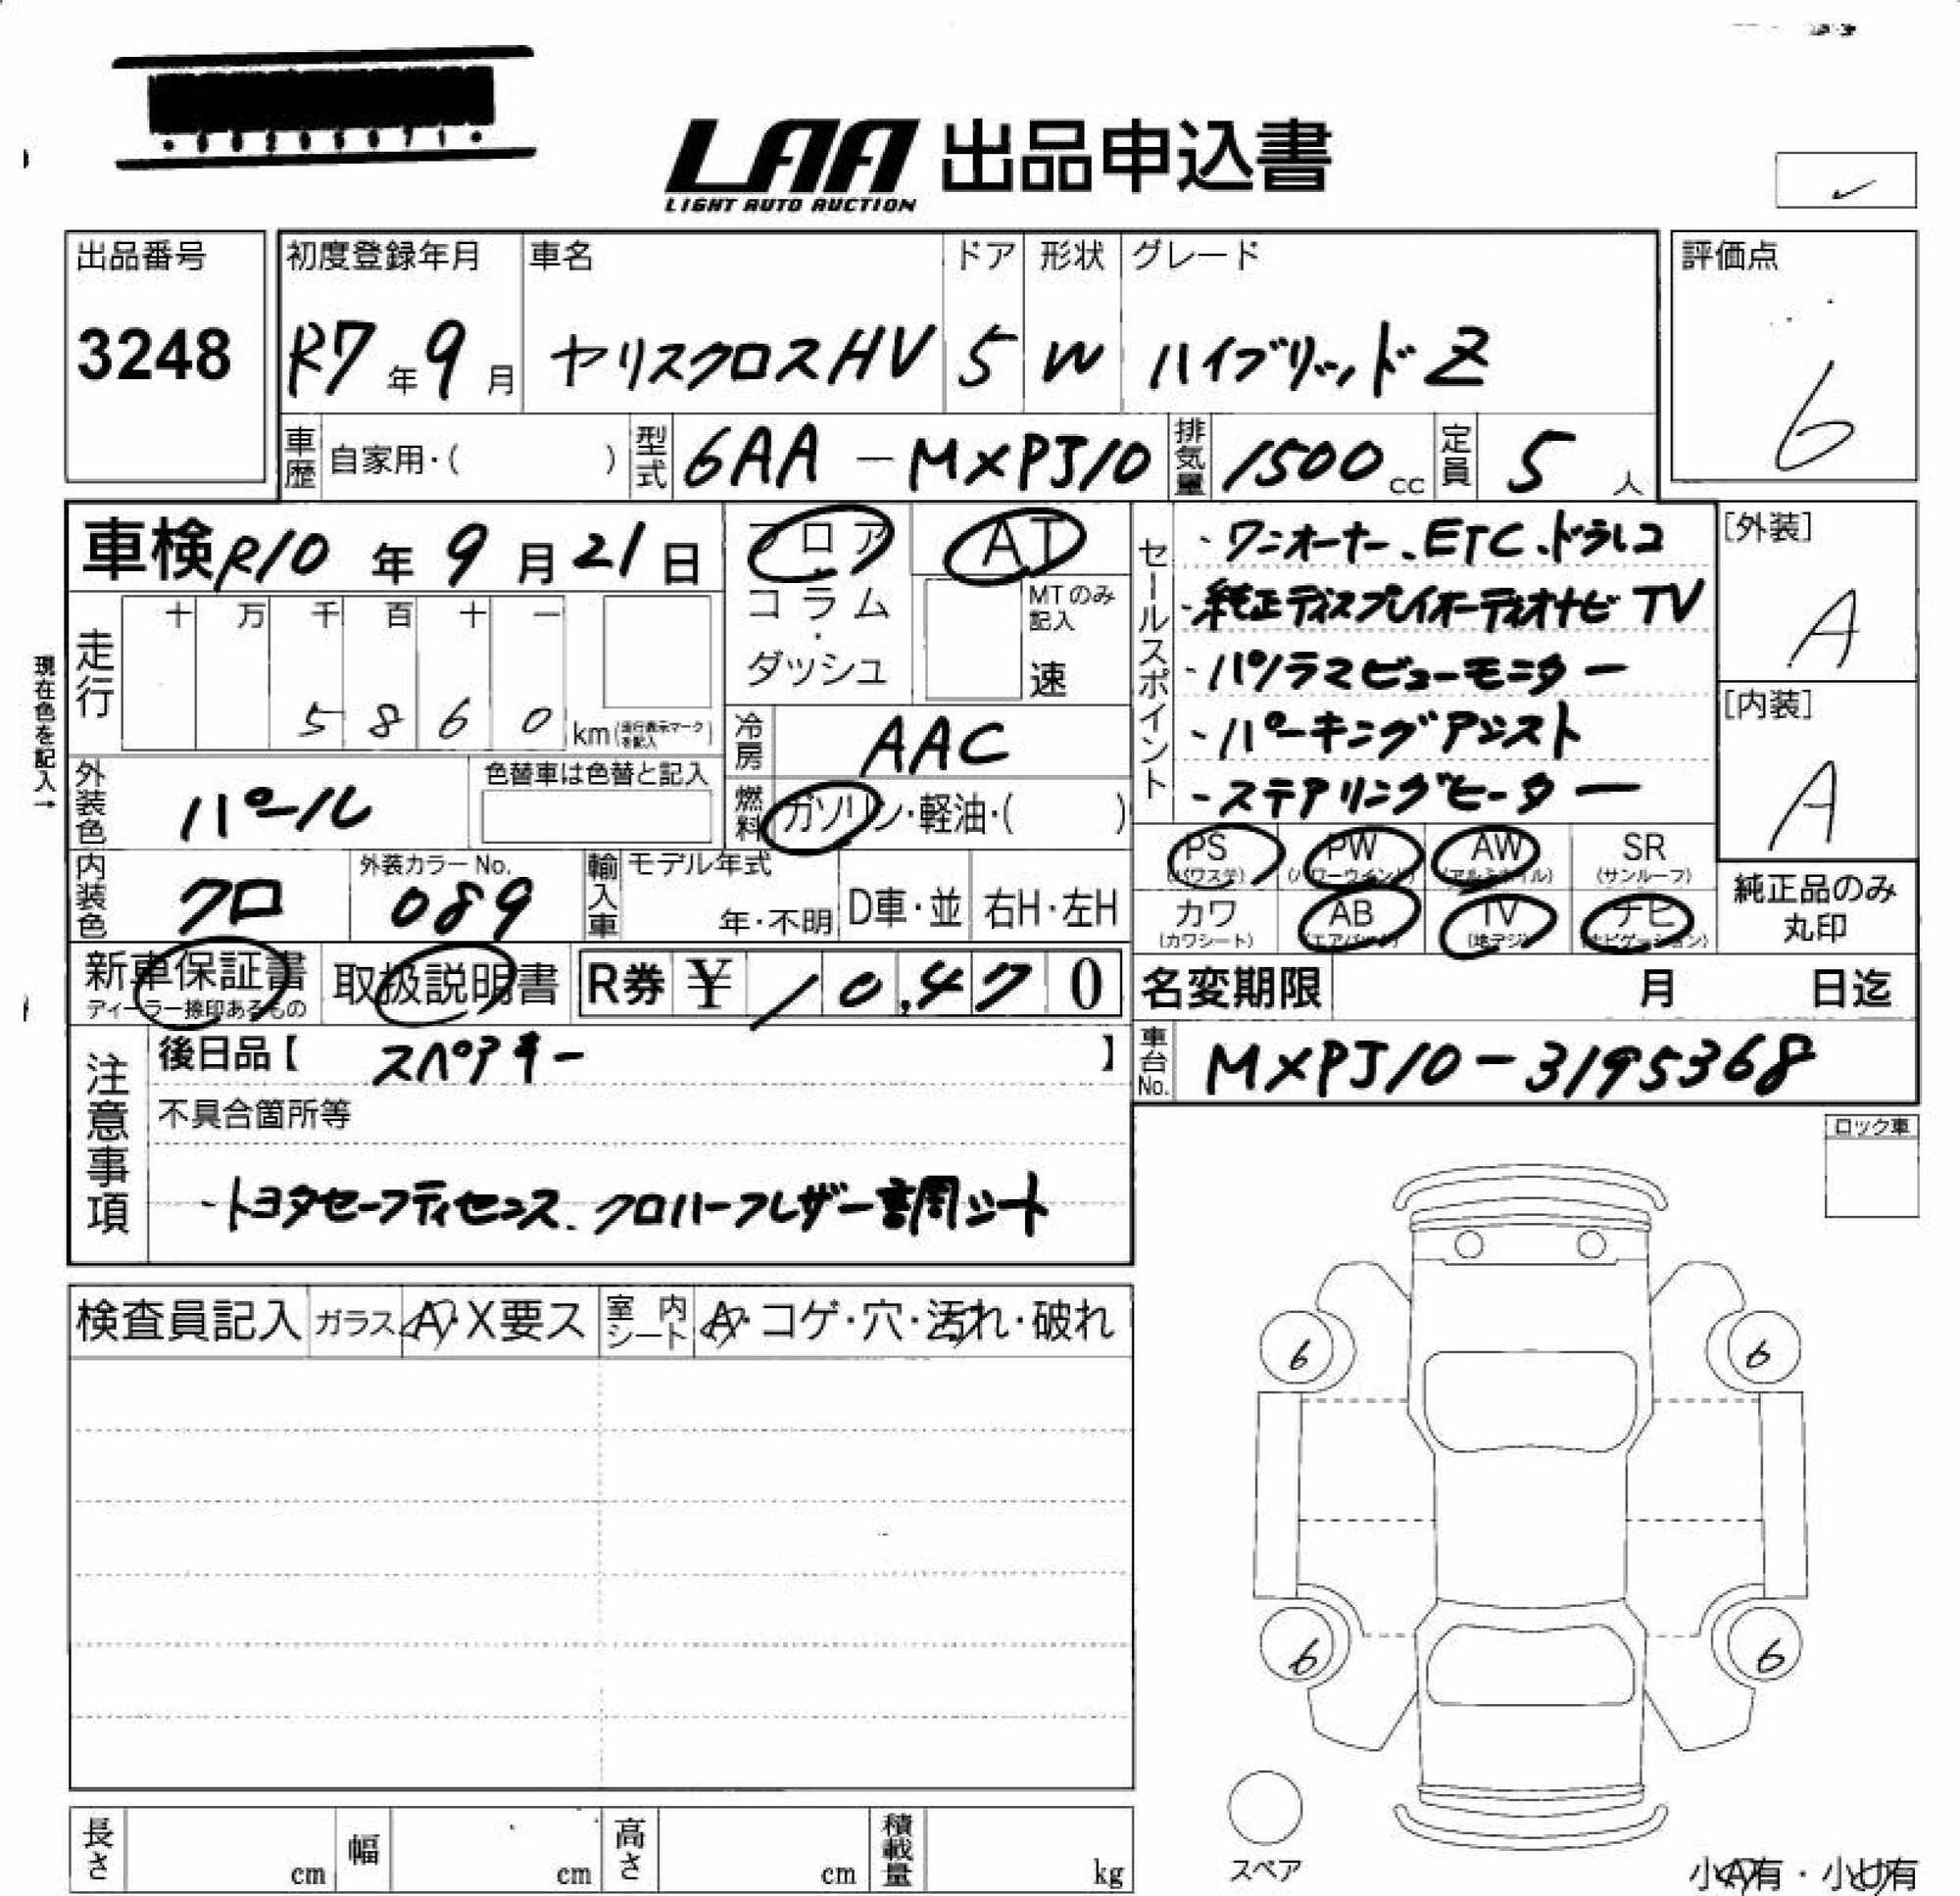 LAA 出品申込書
LIGHT AUTO AUCTION
出品番号
3248
初度登録年月
R7年9月
車名
ヤリスクロスHV
ドア
5
形状
W
グレード
ハイブリッドZ
評価点
6
車歴 自家用・( )
型式 6AA-MXPJ10
排気量 1500cc
定員 5人
車検 R10年9月21日
フロア・コラム・ダッシュ
AT
MTのみ記入
速
セールスポイント
・ワンオーナー、ETC、ドラレコ
・純正ディスプレイオーディオナビ TV
・パノラマビューモニター
・パーキングアシスト
・ステアリングヒーター
[外装]
A
[内装]
A
現在色を記入→
走行
十 万 千 百 十 一
5 8 6 0 km(走行表示マークを記入)
冷房 AAC
燃料 ガソリン・軽油・( )
外装色 パール
色替車は色替と記入
内装色 クロ
外装カラーNo.
089
輸入車 モデル年式
年・不明 D車・並 右H・左H
PS (パワステ) PW (パワーウインド) AW (アルミホイル) SR (サンルーフ)
カワ (カワシート) AB (エアバック) TV (地デジ) ナビ (ナビゲーション)
純正品のみ丸印
新車保証書
ディーラー捺印あるもの
取扱説明書
R券 ¥ 10,470
名変期限 月 日迄
注意事項
後日品【 スペアキー 】
不具合箇所等
・トヨタセーフティセンス、クロハーフレザー調シート
車台No. MXPJ10-3195368
ロック車
検査員記入 ガラス A・X要ス 室内シート A・コゲ・穴・汚れ・破れ
6 6
6 6
スペア
長さ cm 幅 cm 高さ cm 積載量 kg
小A有・小U有